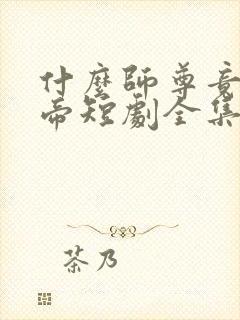 什麼師尊竟
帝短劇全集
茶乃